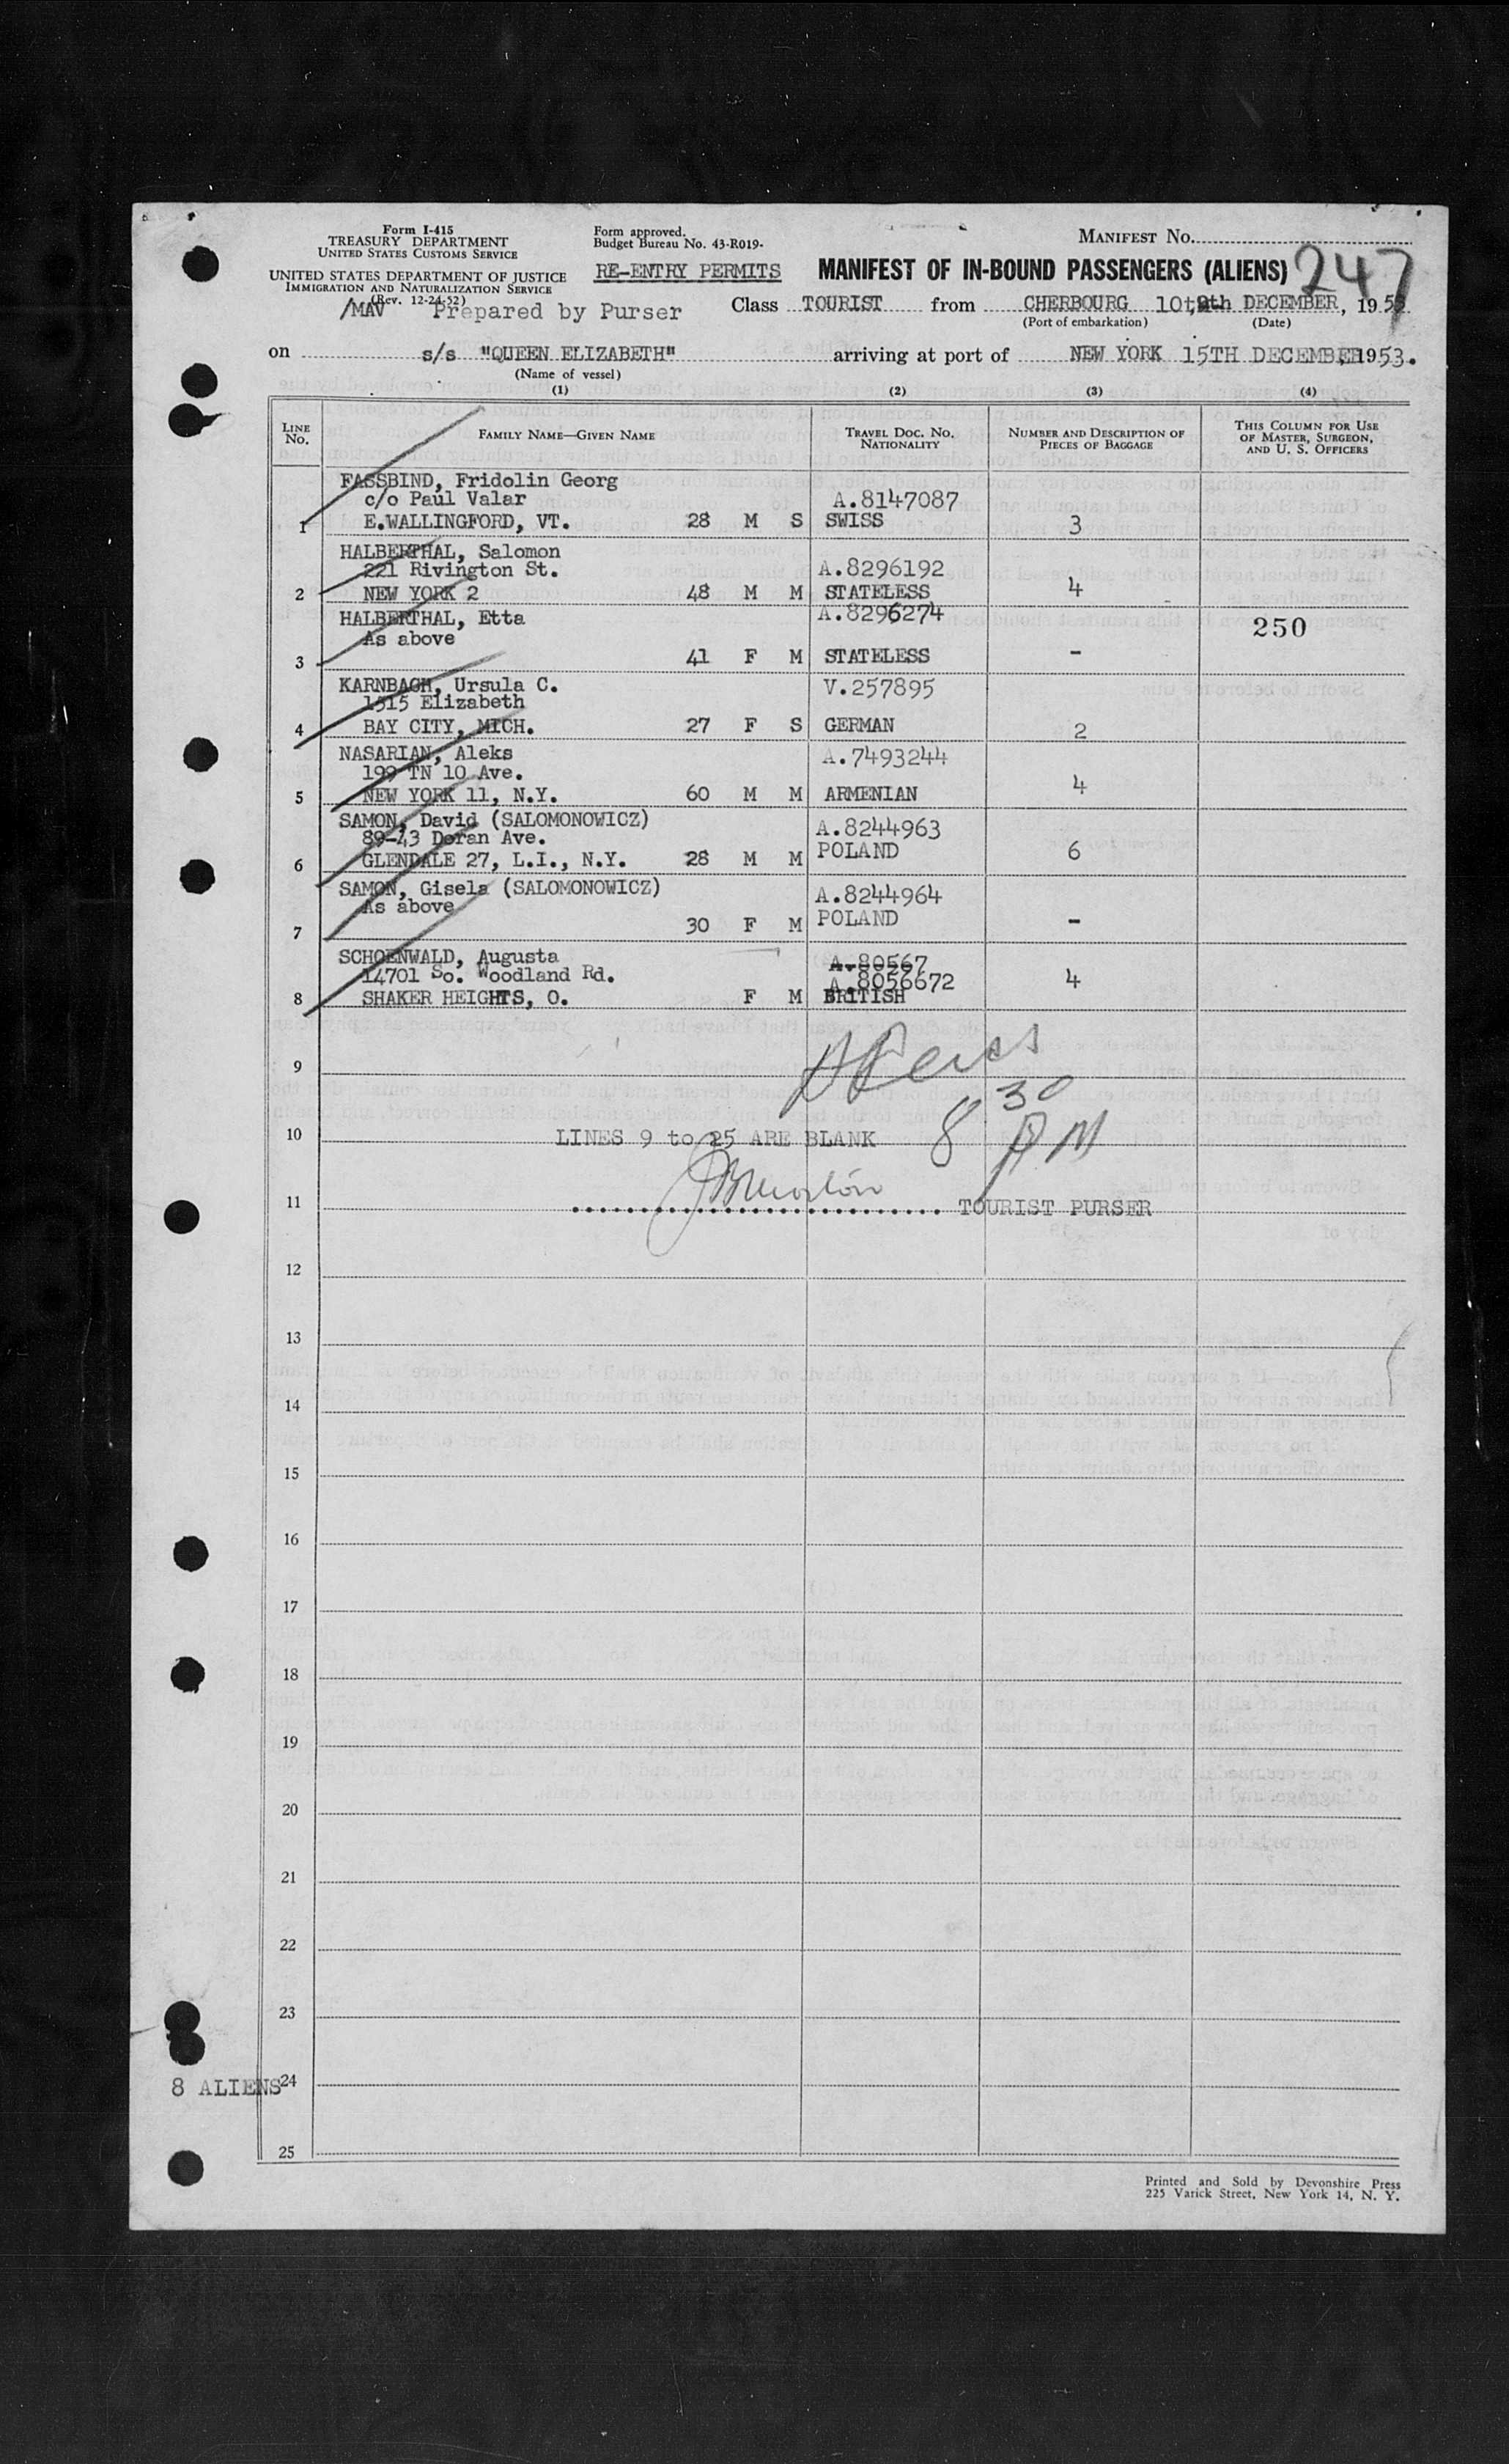 Form I-415
TREASURY DEPARTMENT
UNITED STATES CUSTOMS SERVICE
UNITED STATES DEPARTMENT OF JUSTICE
IMMIGRATION AND NATURALIZATION SERVICE
(Rev. 12-24-52)
Form approved.
Budget Bureau No. 43-R019-
MANIFEST NO.
RE-ENTRY PERMITS MANIFEST OF IN-BOUND PASSENGERS (ALIENS) 247
/MAV Prepared by Purser Class TOURIST from CHERBOURG 10th DECEMBER, 1953
(Port of embarkation) (Date)
on s/s "QUEEN ELIZABETH" arriving at port of NEW YORK 15TH DECEMBER 1953.
(Name of vessel)
(1) (2) (3) (4)
LINE No. FAMILY NAME—GIVEN NAME TRAVEL DOC. NO. NATIONALITY NUMBER AND DESCRIPTION OF PIECES OF BAGGAGE THIS COLUMN FOR USE OF MASTER, SURGEON, AND U. S. OFFICERS
FASSBIND, Fridolin Georg
c/o Paul Valar A.8147087
1 E.WALLINGFORD, VT. 28 M S SWISS 3
HALBERTHAL, Salomon
221 Rivington St. A.8296192
2 NEW YORK 2 48 M M STATELESS 4
HALBERTHAL, Etta A.8296274
As above 250
3 41 F M STATELESS -
KARNBAGH, Ursula C. V.257895
1515 Elizabeth
4 BAY CITY, MICH. 27 F S GERMAN 2
NASARIAN, Aleks A.7493244
199 TN 10 Ave.
5 NEW YORK 11, N.Y. 60 M M ARMENIAN 4
SAMON, David (SALOMONOWICZ) A.8244963
89-43 Doran Ave.
6 GLENDALE 27, L.I., N.Y. 28 M M POLAND 6
SAMON, Gisela (SALOMONOWICZ) A.8244964
As above POLAND
7 30 F M -
SCHOENWALD, Augusta A.80567
14701 So. Woodland Rd. A.8056672
8 SHAKER HEIGHTS, O. F M BRITISH 4
9
8 30 PM
10 LINES 9 to 25 ARE BLANK
11 TOURIST PURSER
12
13
14
15
16
17
18
19
20
21
22
23
8 ALIENS 24
25
Printed and Sold by Devonshire Press
225 Varick Street, New York 14, N. Y.